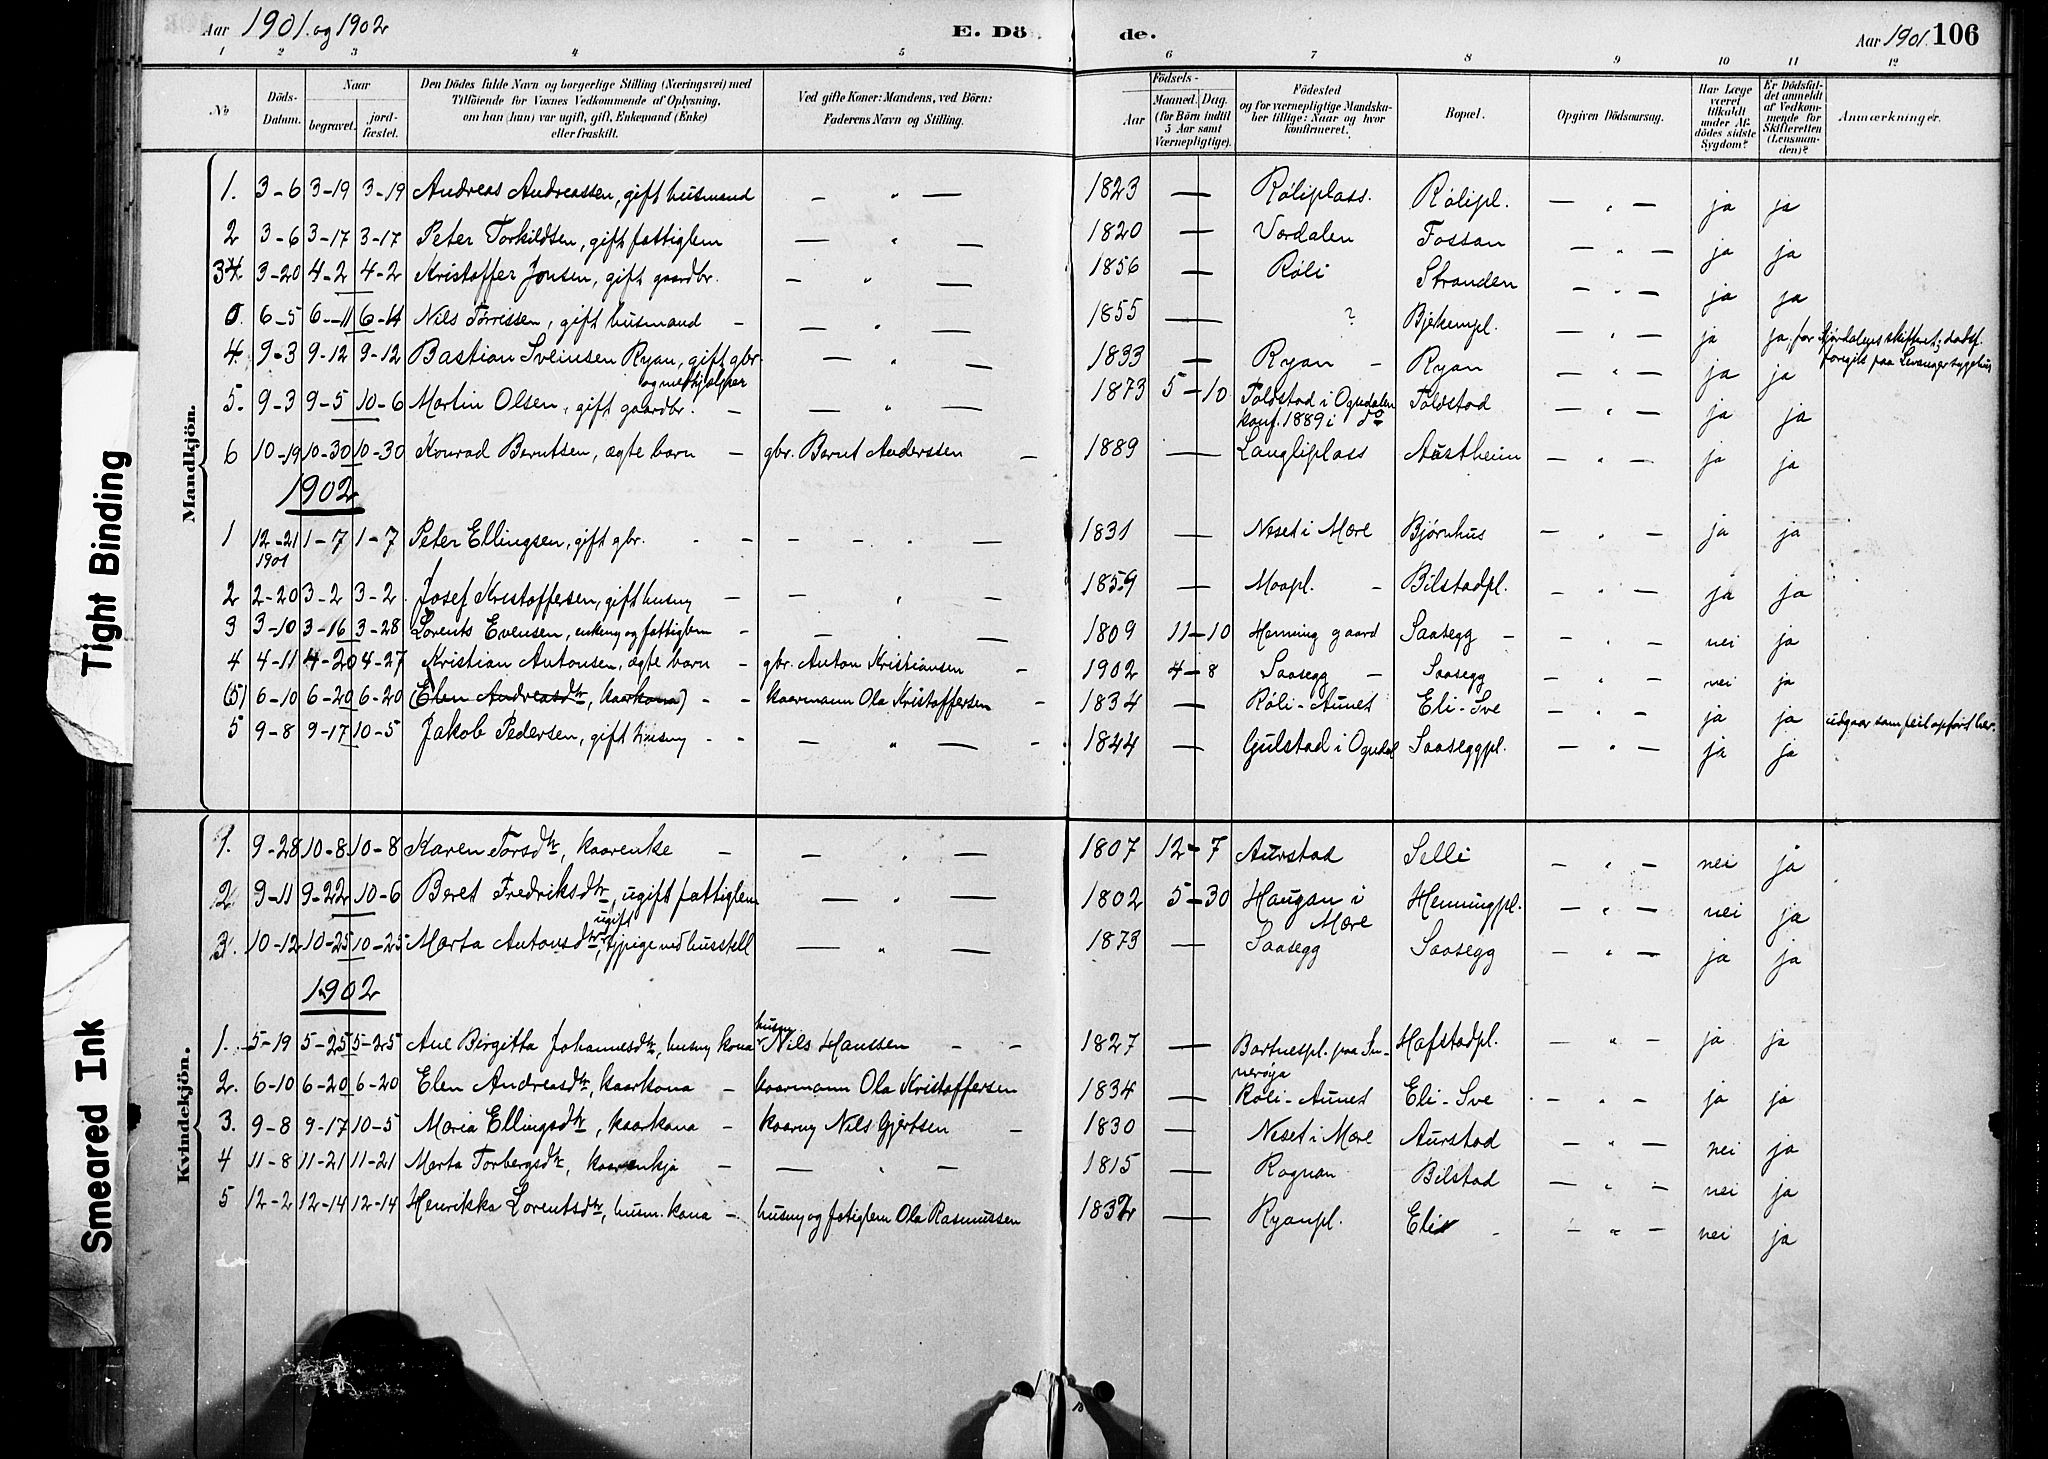 Aar 1901 og 1902 E. Dö de. Aar 1901. 106
1 2 3 4 5 6 7 8 9 10 11 12
No. Döds-Datum. Naar begravet. jord-fæstet. Den Dödes fulde Navn og borgerlige Stilling (Næringsvei) med Tilföiende for Voxnes Vedkommende af Oplysning, om han (hun) var ugift, gift, Enkemand (Enke) eller fraskilt. Ved gifte Koner: Mandens, ved Börn: Faderens Navn og Stilling. Födsels- Aar Maaned. Dag. (for Börn indtil 5 Aar samt Værnepligtige). Födested og for værnepligtige Mandska-ber tillige: Naar og hvor konfirmeret. Bopæl. Opgiven Dödsaarsag. Har Læge været tilkaldt under Af-dödes sidste Sygdom? Er Dödsfal-det anmeldt af Vedkom-mende for Skifteretten (Lensman-den)? Anmærkninger.
Mandkjön.
1. 3-6 3-19 3-19 Andreas Andreassen, gift husmand — " — 1823 — Røliplass. Rølipl. — " — ja ja
2 3-6 3-17 3-17 Peter Torkildsen, gift fattiglem — " — 1820 — Vordalen Fossan — " — ja ja
3 3-20 4-2 4-2 Kristoffer Jonsen, gift gaardbr. — " — 1856 — Røli Stranden — " — ja ja
0. 6-5 6-11 6-11 Nils Torrissen, gift husmand — — " — 1855 — ? Bjekempl. — " — ja ja, for
4. 9-3 9-12 9-12 Bastian Sveinsen Ryan, gift gbr. — " — 1833 — Ryan — Ryan — " — ja ja
og medhjælper
5. 9-3 9-5 10-6 Martin Olsen, gift gaardbr. — — " — 1873 5-10 Toldstad i Ogndalen Toldstad — " — ja ja
konf. 1889 i do
6 10-19 10-30 10-30 Konrad Berntsen, ægte barn — gbr. Bernt Anderssen — 1889 — Langliplass Austheim — " — ja ja
1902
1 12-21 1-7 1-7 Peter Ellingsen, gift gbr. — — — " — 1831 — Neset i Mære Bjørnhus — " — ja ja
1901
2 2-20 3-2 3-2 Josef Kristoffersen, gift husm — — " — 1859 — Moapl. — Bilstadpl. — " — ja ja
3 3-10 3-16 3-28 Lorents Evensen, enkem og fattiglem — — " — 1809 11-10 Henning gaard Saasegg — — " — nei ja
4 4-11 4-20 4-27 Kristian Antonsen, ægte barn — gbr. Anton Kristiansen — 1902 4-8 Saasegg — Saasegg — " — nei ja
(5) 6-10 6-20 6-20 (Elen Andreasdtr, kaarkona) — — kaarmann Ola Kristoffersen — 1834 — Røli-Aunet Eli-Sve — " — ja ja udgaar som feil opført her.
5 9-8 9-17 10-5 Jakob Pedersen, gift husm — — — " — — 1844 — Gulstad i Ogndal Saaseggpl. — " — ja ja
Kvindekjön.
1. 9-28 10-8 10-8 Karen Torsdtr, kaarenke — — " — 1807 12-7 Aurstad Selli — " — nei ja
2. 9-11 9-22 10-6 Beret Fredriksdtr, ugift fattiglem — " — 1802 5-30 Haugan i Mære Henningpl. — " — nei ja
ugift
3. 10-12 10-25 10-25 Marta Antonsdtr, tjpige ved husstell — " — 1873 — Saasegg Saasegg — " — ja ja
1902
husm
1. 5-19 5-25 5-25 Ane Birgitta Johannesdtr, husm kona Nils Hanssen — — 1827 — Bartnespl. paa In-nerøya Hafstadpl. — " — ja ja
2. 6-10 6-20 6-20 Elen Andreasdtr, kaarkona — kaarmann Ola Kristoffersen 1834 — Røli-Aunet Eli-Sve — " — ja ja
3. 9-8 9-17 10-5 Maria Ellingsdtr, kaarkona — kaarm Nils Gjertsen — 1830 — Neset i Mære Aurstad — " — nei ja
4 11-8 11-21 11-21 Marta Torbergsdtr, kaarenkja — — " — 1815 — Rognan Bilstad — " — nei ja
5 12-2 12-14 12-14 Henrikka Lorentsdtr, husm. kona — husm og fatiglem Ola Rasmussen 1832 — Ryanpl. Eli — — " — nei ja
Tight Binding
Smeared Ink